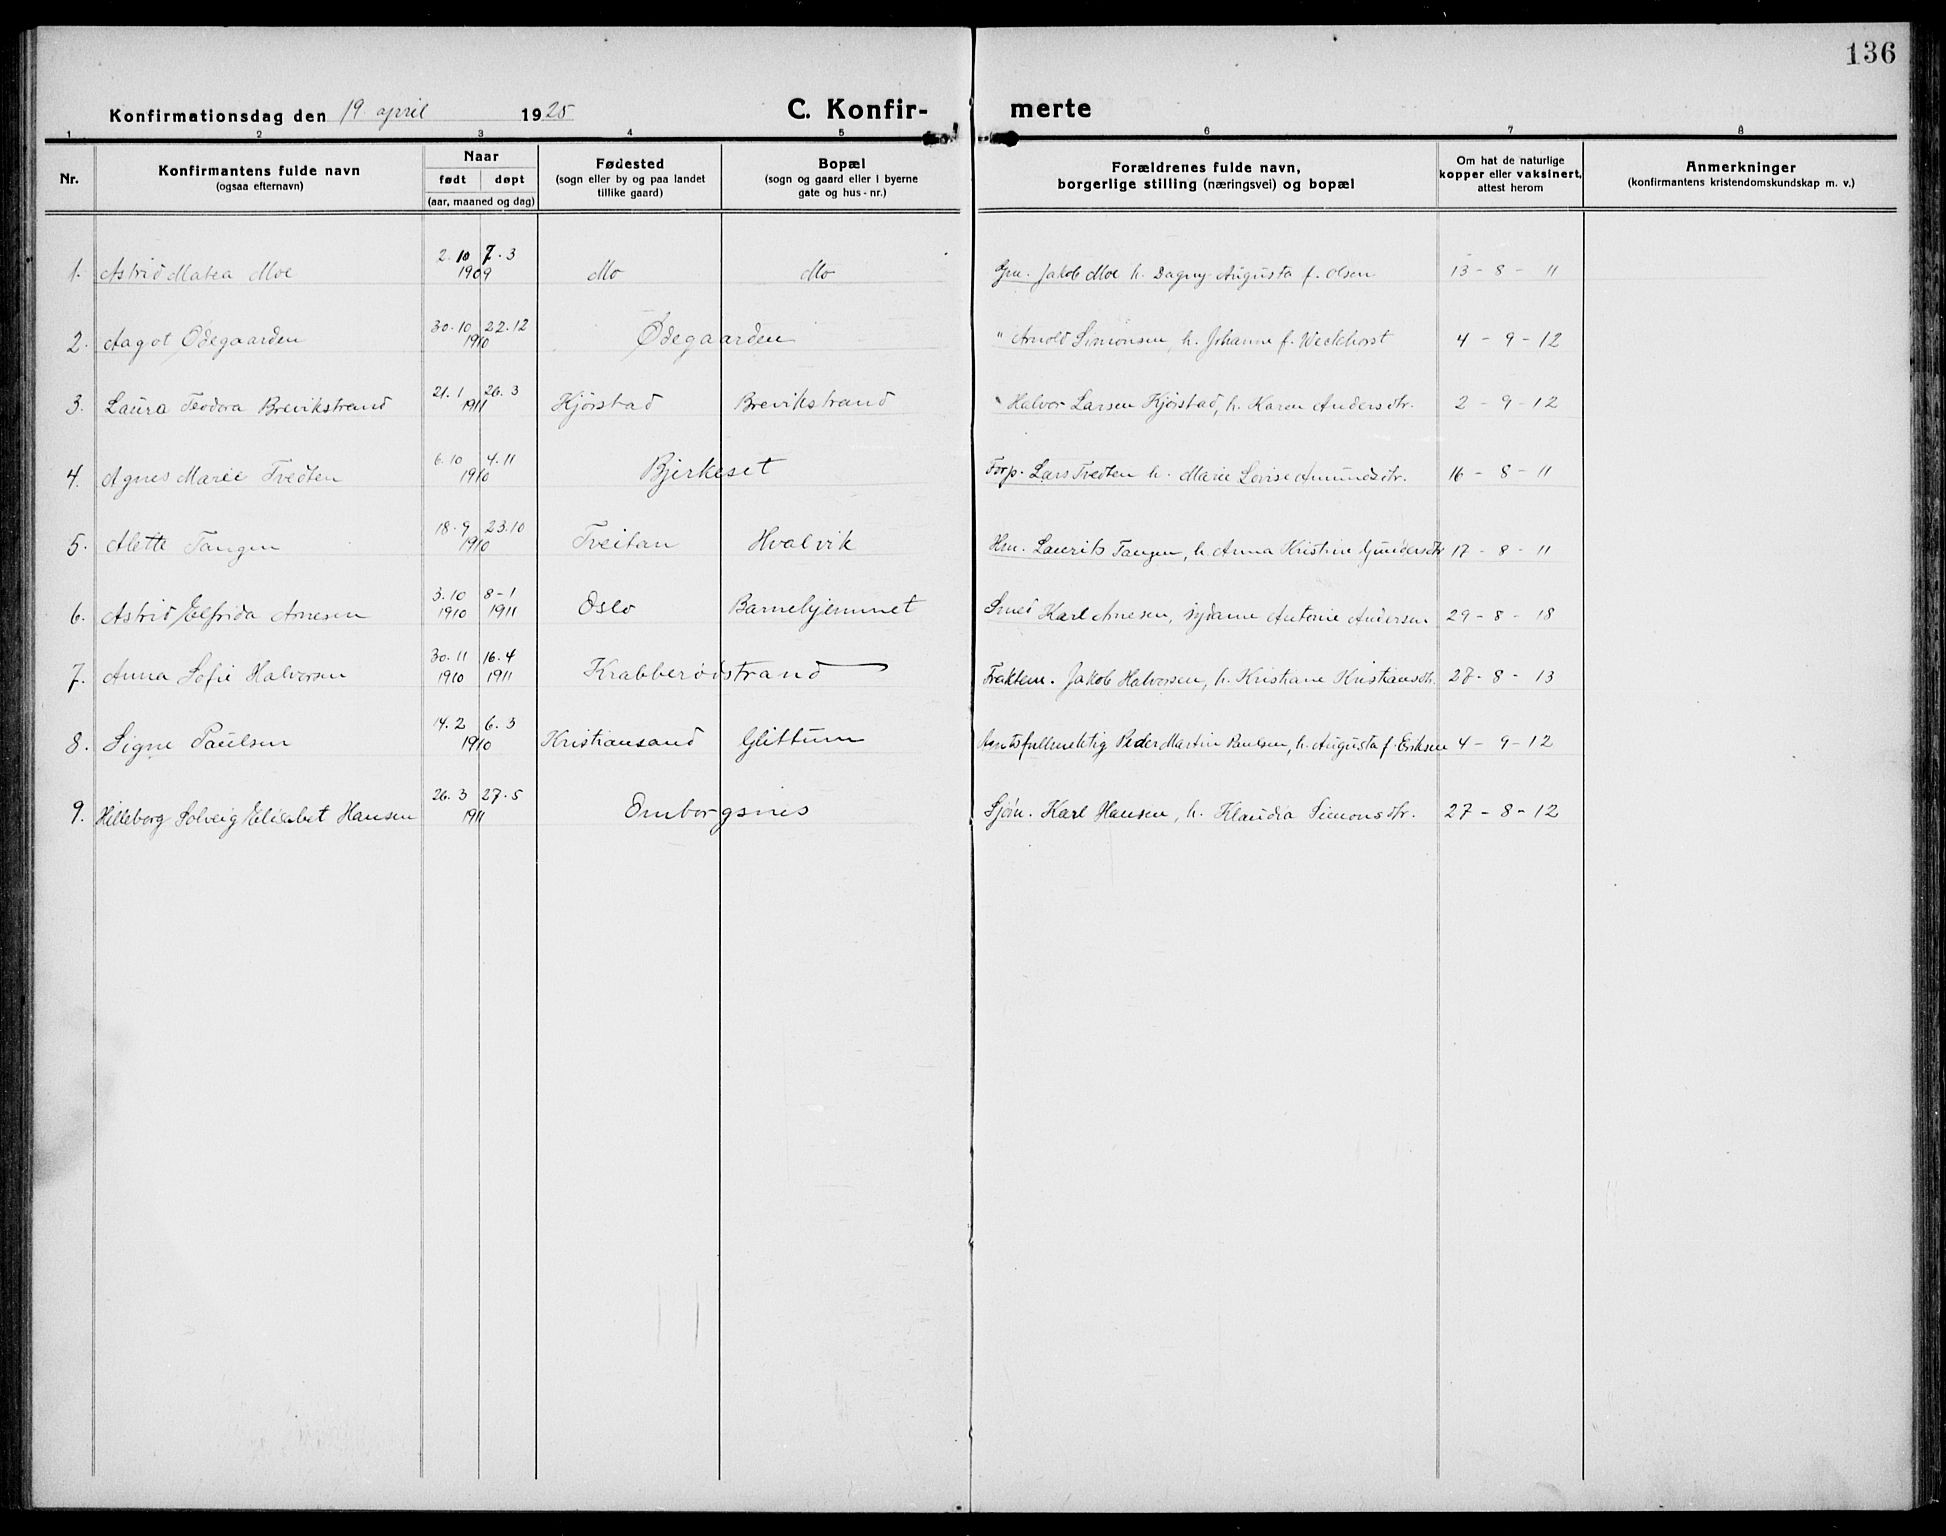 136
Konfirmationsdag den 19. april 1925 C. Konfir- merte
1 2 3 4 5 6 7 8
Nr. Konfirmantens fulde navn (ogsaa efternavn) Naar født døpt (aar, maaned og dag) Fødested (sogn eller by og paa landet tillike gaard) Bopæl (sogn og gaard eller i byerne gate og hus-nr.) Forældrenes fulde navn, borgerlige stilling (næringsvei) og bopæl Om hat de naturlige kopper eller vaksinert, attest herom Anmerkninger (konfirmantens kristendomskundskap m. v.)
1. Astrid Matea Moe 2.10 7.3 1909 Mo Mo Gm. Jakob Moe h. Dagny Augusta f. Olsen 13-8-11
2. Aagot Ødegaarden 30.10 22.12 1910 Ødegaarden " Arnold Simonsen, h. Johanne f. Weckhorst 4-9-12
3. Laura Teodora Brevikstrand 21.1 26.3 1911 Kjørstad Brevikstrand " Halvor Larsen Kjørstad, h. Karen Andersdtr. 2-9-12
4. Agnes Marie Tvedten 6.10 4.11 1910 Bjerkeset Forp. Lars Tvedten h. Marie Lovise Amundsdtr. 16-8-11
5. Alette Tangen 18.9 23.10 1910 Tveitan Hvalvik Hm. Laurits Tangen, h. Anna Kristine Gundersdtr 17-8-11
6. Astrid Elfrida Arnesen 3.10 1910 8-1 1911 Oslo Barnehjemmet Smed Karl Arnesen, sydame Antonie Andersen 29-8-18
7. Anna Sofie Halvorsen 30.11 1910 16.4 1911 Krabberødstrand Fraktem. Jakob Halvorsen, h. Kristiane Kristiansdtr. 27-8-13
8. Signe Paulsen 14.2 6.3 1910 Kristiansand Glittum Amtsfullmektig Peder Martin Paulsen, h. Augusta f. Eriksen 4-9-12
9. Hilleborg Solveig Elisabet Hansen 26.3 27.5 1911 Omborgsnes Sjøm. Karl Hansen, h. Klaudia Simonsdtr. 27-8-12